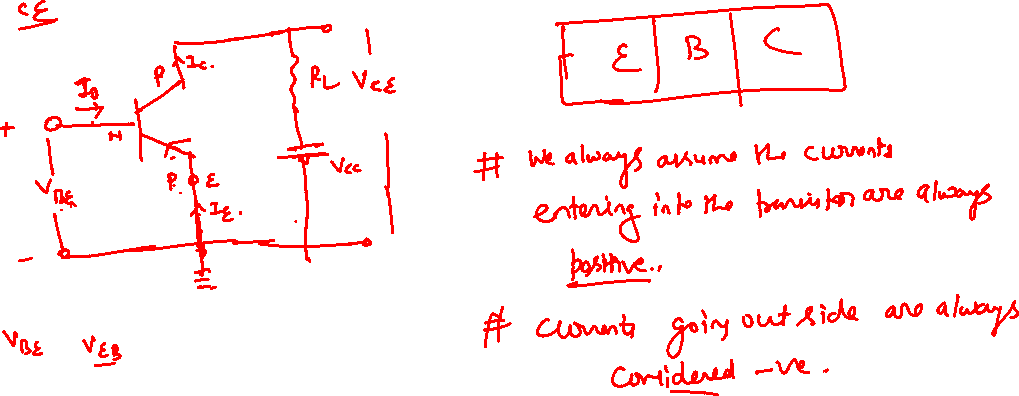 CE
P
Ic.
IB
+
N
RL
VCE
VBE
P.
E
VCC
IE.
-
VBE VEB
E B C
# We always assume the currents
entering into the transistor are always
positive..
# Currents going out side are always
considered -ve.